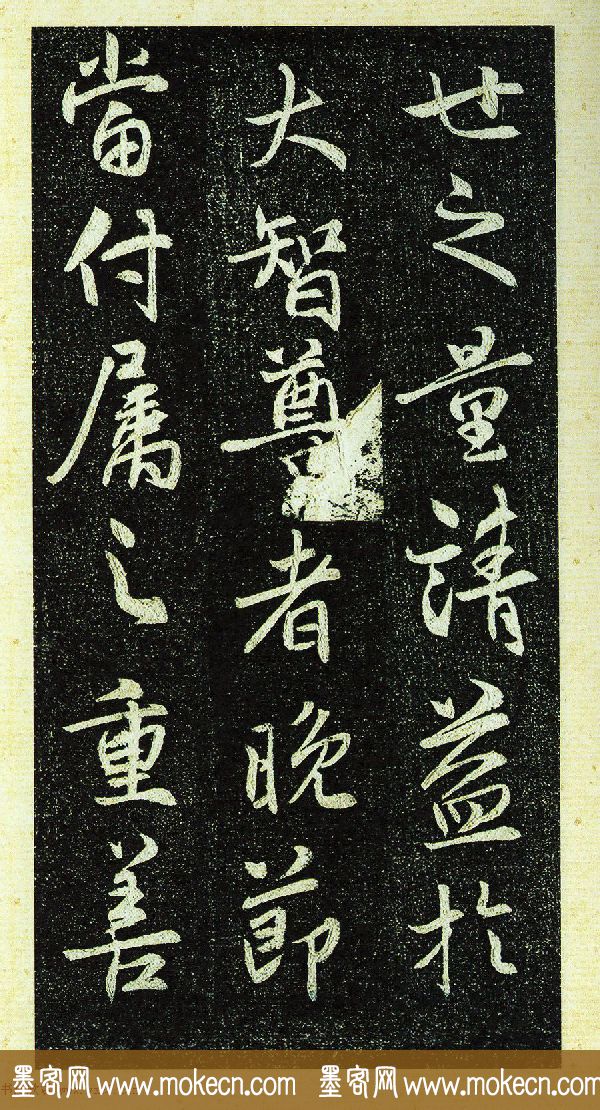 世之量請益於
大智尊者晚節
當付属之重善
墨客网 www.mokecn.com 墨客网 www.mokecn.com